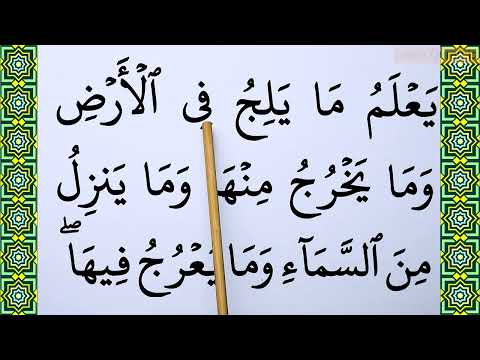 يَعْلَمُ مَا يَلِجُ فِى ٱلْأَرْضِ
وَمَا يَخْرُجُ مِنْهَا وَمَا يَنزِلُ
مِنَ ٱلسَّمَآءِ وَمَا يَعْرُجُ فِيهَا ۖ